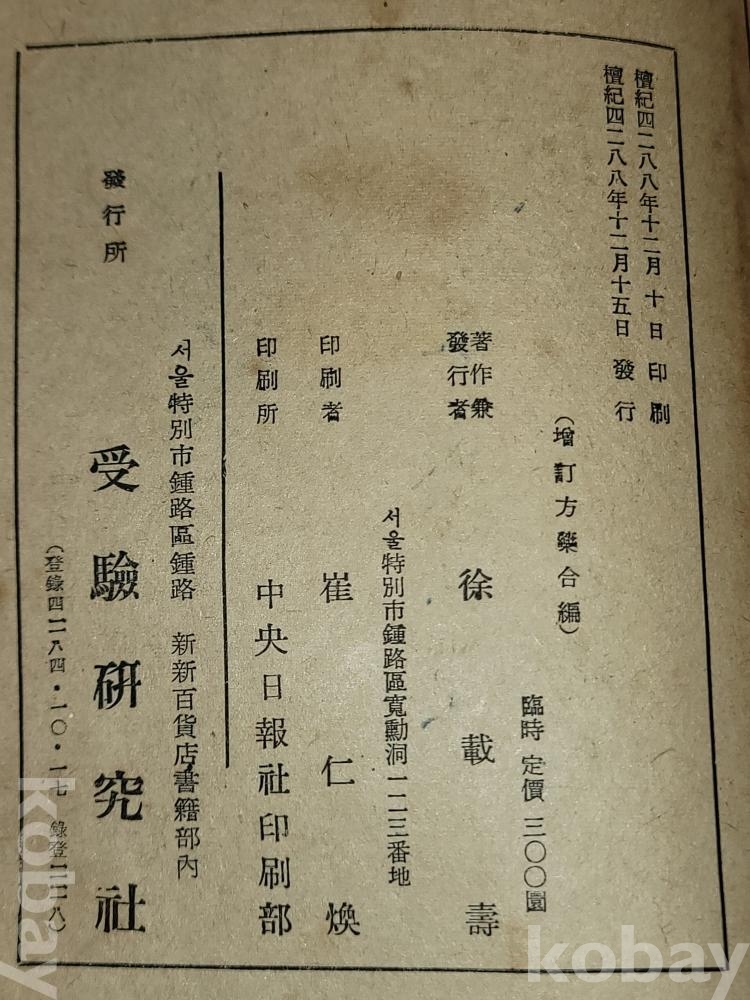 檀紀四二八八年十二月 十 日 印刷
檀紀四二八八年十二月十五日 發行
(增訂方藥合編)
臨時 定價 三〇〇圜
著作兼
發行者
徐載壽
서울特別市鍾路區寬勳洞一二三番地
印刷者 崔仁煥
印刷所 中央日報社印刷部
서울特別市鍾路區鍾路 新新百貨店書籍部內
發行所 受驗硏究社
(登錄四二八四・一〇・一七 錄登二二八)
kobay
kobay